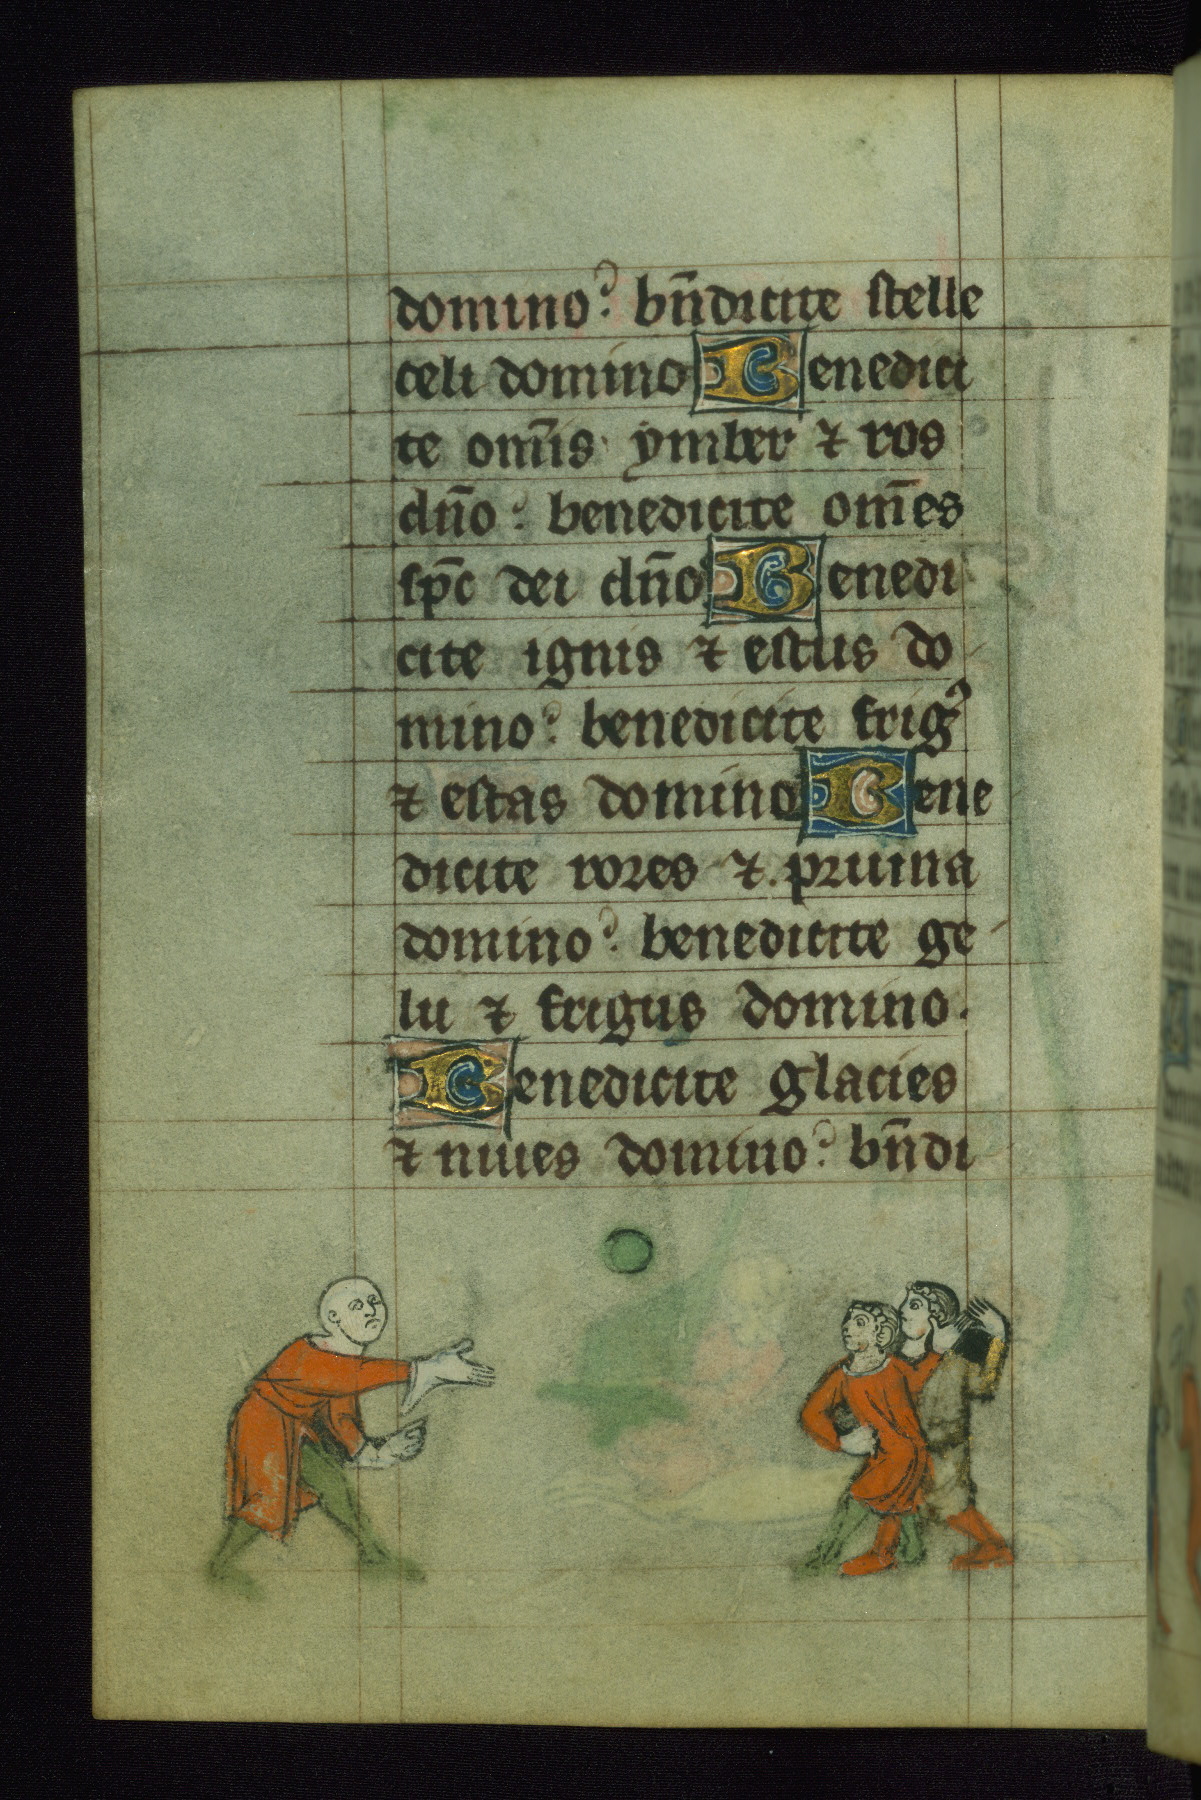 domino? bn̄dicite stelle
celi domino Benedici
te om̄is ymber ⁊ ros
dn̄o: benedicite om̄es
sp̄c dei dn̄o Benedi
cite ignis ⁊ estus do
mino? benedicite frigꝰ
⁊ estas domino Bene
dicite rores ⁊. pruina
domino? benedicite ge
lu ⁊ frigus domino.
Benedicite glacies
⁊ niues domino? bn̄di